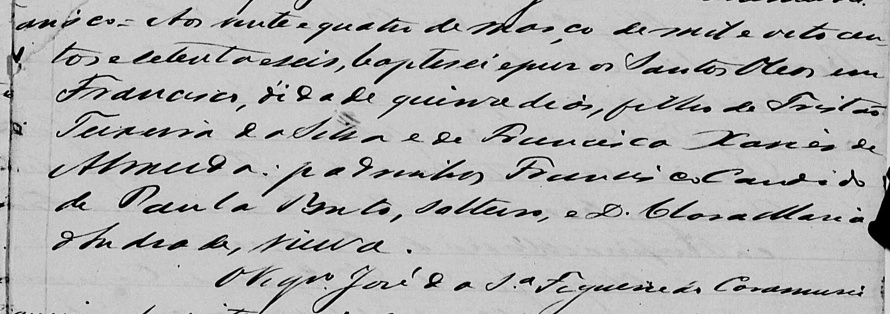 ancisco = Aos vinte e quatro de março de mil e oito cen-
tos e setenta e seis, baptisei e puz os Santos Oleos em
Francisco, d'idade de quinze dias, filho de Tristão
Teixeira da Silva e de Francisca Xavier de
Almeida: padrinhos Francisco Candido
de Paula Brito, solteiro, e D. Clara Maria
d'Andrade, viuva.
O Vigr.o José da S.a Figueiredo Caramurú